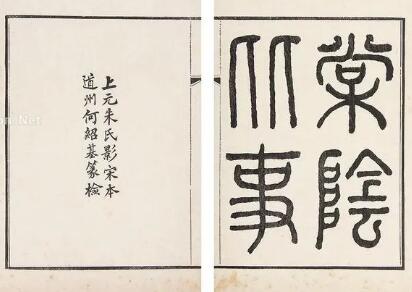 棠陰
比事
上元朱氏影宋本
道州何紹基篆檢